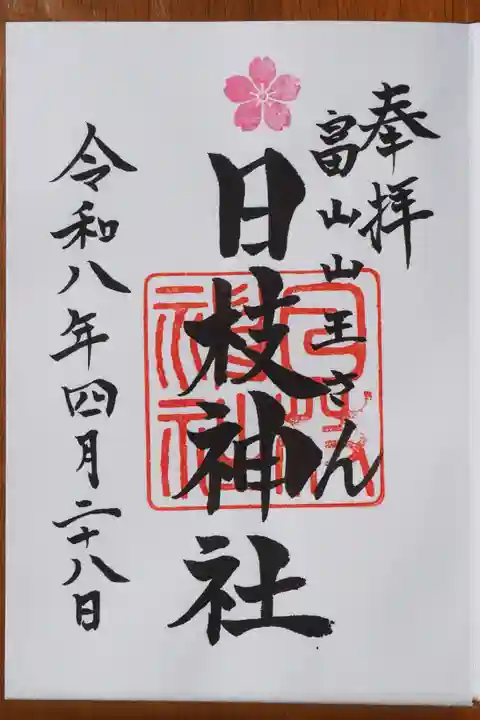 奉拝
富山山王さん
日枝神社
令和八年四月二十八日